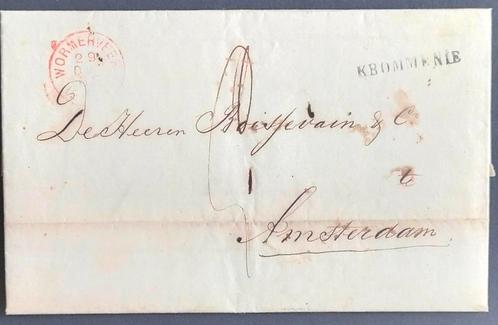 WORMERVEER
KROMMENIE
De Heeren Boissevain & Co
te
Amsterdam